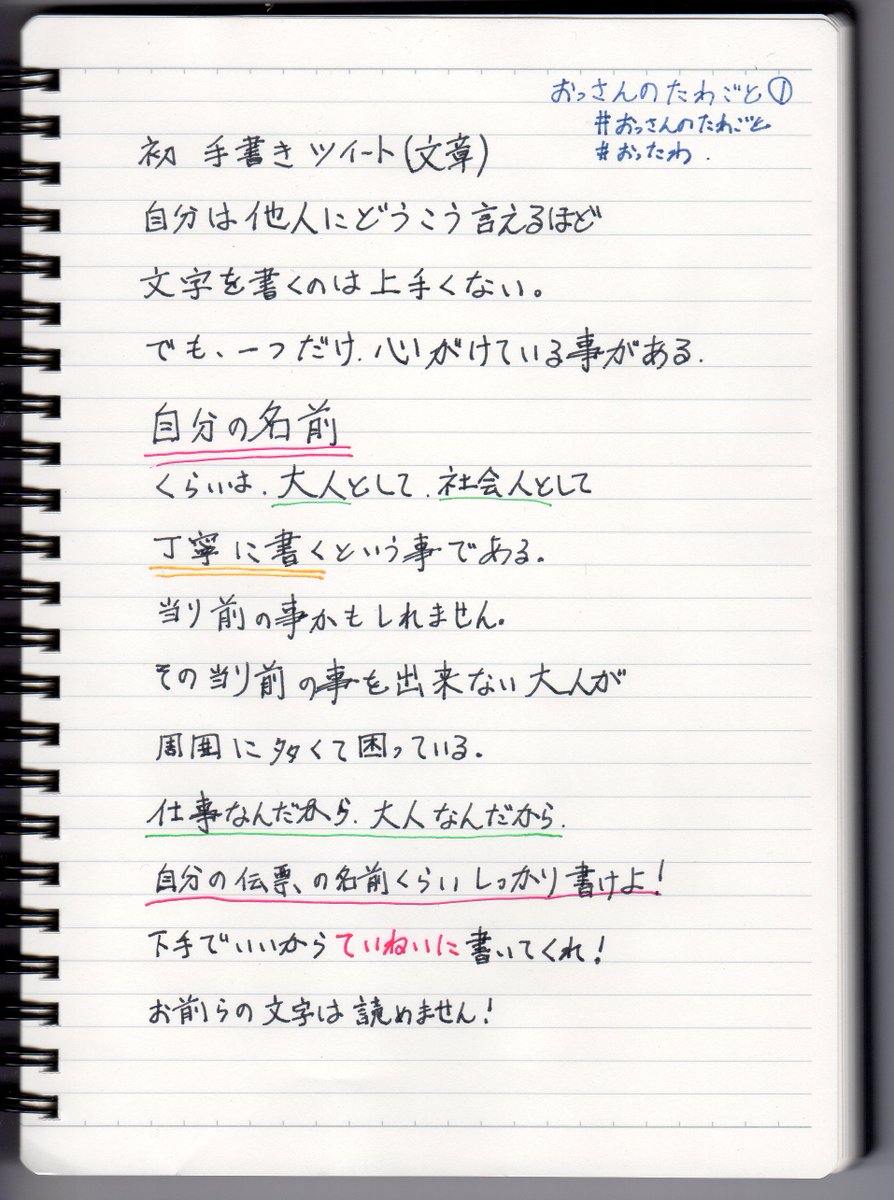 おっさんのたわごと①
#おっさんのたわごと
#おったわ.
初 手書きツイート(文章)
自分は他人にどうこう言えるほど
文字を書くのは上手くない。
でも、一つだけ、心がけている事がある.
自分の名前
くらいは、大人として、社会人として
丁寧に書くという事である.
当り前の事かもしれません.
その当り前の事を出来ない大人が
周囲に多くて困っている.
仕事なんだから、大人なんだから.
自分の伝票、の名前くらいしっかり書けよ!
下手でいいからていねいに書いてくれ!
お前らの文字は読めません!